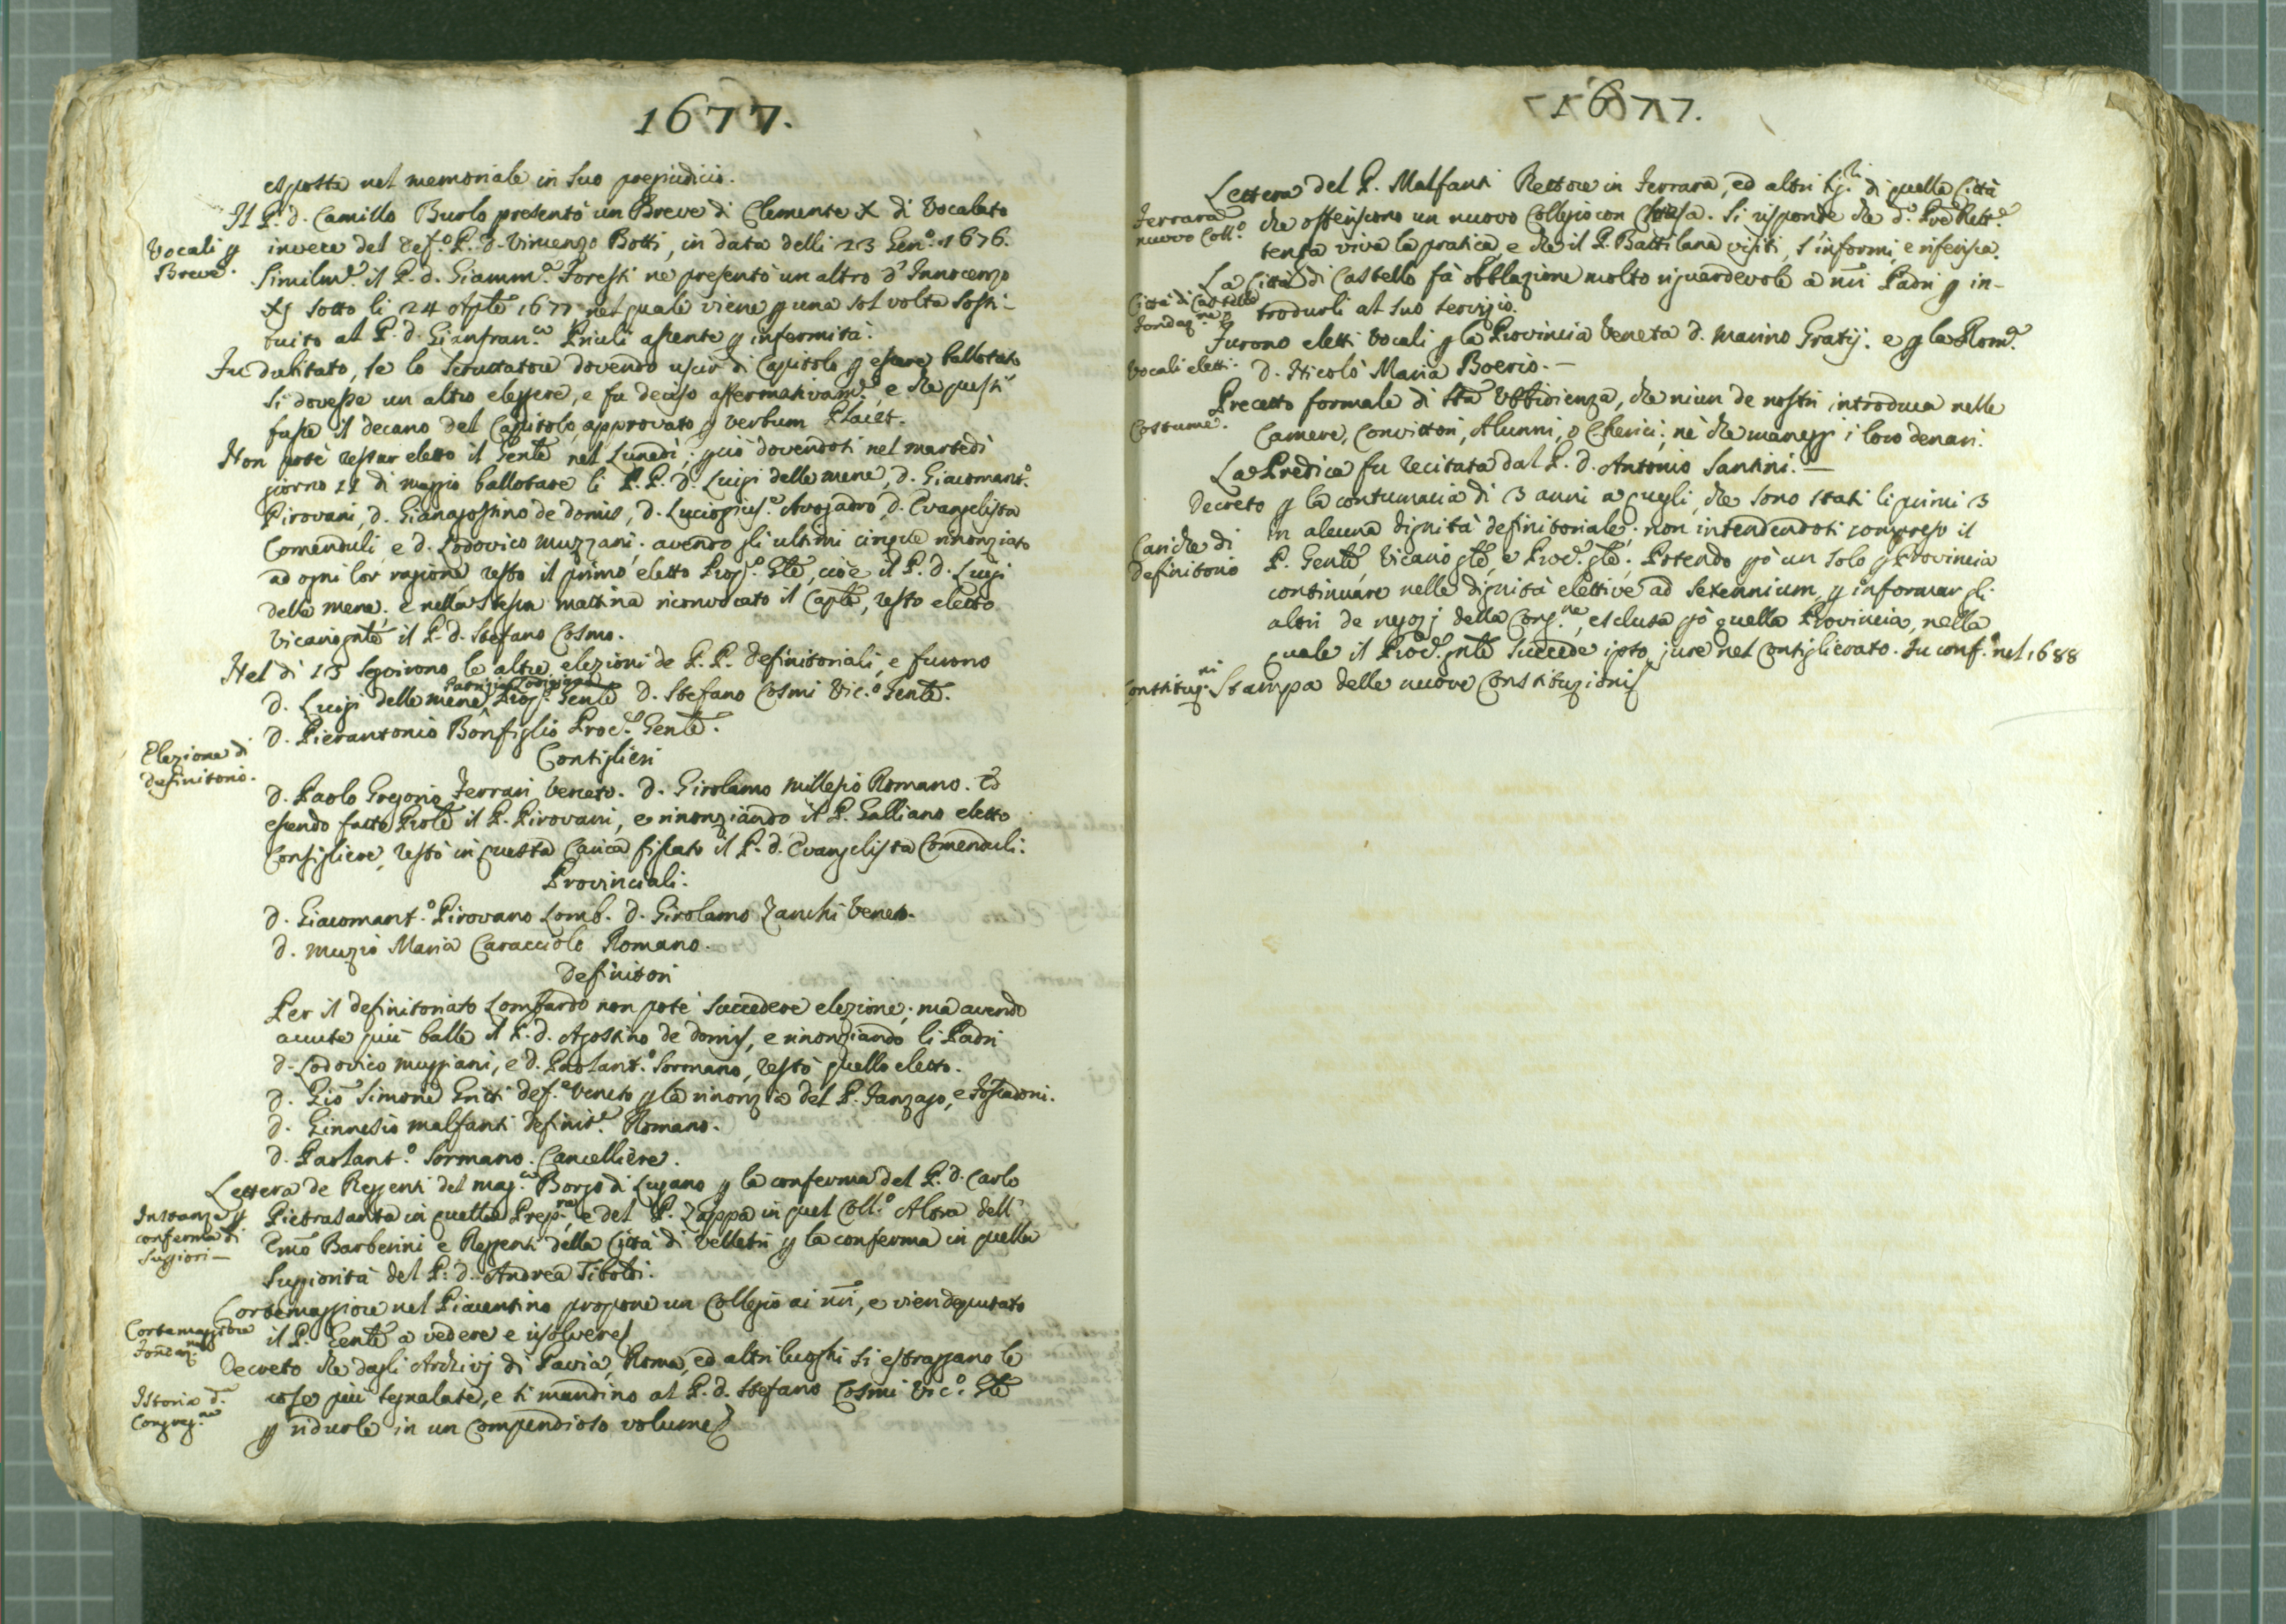 1677.
esposta nel memoriale in suo pregiudicio.
Il P. d. Camillo Burlo presentò un Breve di Clemente X di Vocalato
Vocali p
Breve.
invece del def.º P. d. Vincenzo Botti, in data delli 23 Gen.º 1676.
Similm.e il P. d. Giamm.a Foresti ne presentò un altro d'Innocenzo
XI sotto li 24 Aple 1677 nel quale viene p una sol volta sosti-
tuito al P. d. Gianfran.co Priuli assente p infermità.
Fu dubitato, se lo Scruttatore dovendo uscir di Capitolo p essere ballotato
si dovesse un altro eleggere, e fu deciso affermativam.e, e che questi
fusse il decano del Capitolo, approvato p verbum Placet.
Non potè restar eletto il Genle nel Lunedì; p ciò dovendosi nel martedì
giorno 11 di maggio ballotare li P.P. d. Luigi delle mene, d. Giacomant.º
Pirovani, d. Gianagostino de domis, d. Avogadro, d. Evangelista
Comenduli, e d. Lodovico muzzani; avendo gli ultimi cinque rinonziato
ad ogni lor ragione, restò il primo eletto Prop.º Gle, cioè il P. d. Luigi
delle mene; e nella stessa mattina riconvocato il Caple, restò eletto
Vicario gnle il P. d. Stefano Cosmo.
Nel dì 13 seguirono le altre elezioni de P.P. definitoriali, e furono
d. Luigi delle mene Prop.º Genle d. Stefano Cosmi Vic.º Genle.
d. Pierantonio Bonfiglio Proc.e Genle.
Elezione di
definitorio.
Consiglieri
d. Paolo Gregorio Ferrari Veneto. d. Girolamo Millesio Romano. Ed
essendo fatto Prole il P. Pirovani, e rinonziando il P. Galliano eletto
Consigliere, restò in questa Carica fissato il P. d. Evangelista Comenduli.
Provinciali.
d. Giacomant.º Pirovano Lomb. d. Girolamo Zanchi Veneto.
d. Muzio Maria Caracciolo Romano.
Definitori
Per il definitoriato Lombardo non potè succedere elezione; ma avendo
avute più balle il P. d. Agostino de domis, e rinonziando li Padri
d. Lodovico muzzani, e d. Paolant.º Sormano, restò quello eletto.
d. Gio Simone Gritti def.e Veneto p la rinonzia del P. Fanzago, e Foscadoni.
d. Ginnesio malfanti definit.e Romano.
d. Paolant.º Sormano Cancelliere.
Lettera de Reggenti del mag.co Borgo di Lugano p la conferma del P. d. Carlo
Instanze p
conferma di
Supiori–
Pietrasanta in quella Prep.ra, e del P. Zappa in quel Coll.º Altra dell'
Emo Barberini e Reggenti della Città di Velletri p la conferma in quella
Supiorità del P. d. Andrea Tiboldi.
Cortemaggiore nel Piacentino propone un Collegio ai nri, e vien deputato
Cortemaggiore
Fondaz.ne
il P. Genle a vedere e risolvere.
Decreto che dagli Archivj di Pavia, Roma, ed altri luoghi si estraggano le
Istoria d.
Congreg.ne
cose più segnalate, e si mandino al P. d. Stefano Cosmi Vic.º Gle
p ridurle in un compendioso volume.
1677.
Lettera del P. Malfanti Rettore in Ferrara, ed altri Sig.ri di quella Città
Ferrara
nuovo Coll.º
che offeriscono un nuovo Collegio con Chiesa. Si risponde che d.º Pre Rett.e
tenga viva la pratica, e che il P. Battilana visiti, s'informi, e riferisca.
La Città di Castello fà obblazione molto riguardevole a nri Padri p in-
Città di Castello
Fondaz.ne
trodurli al suo servizio.
Furono eletti Vocali p la Provincia Veneta d. Marino Gratij: e p la Rom.a
Vocali eletti.
d. Nicolò Maria Boerio.–
Precetto formale di Sta Ubbidienza, che niun de nostri introduca nelle
Costume.
Camere, Convittori, Alunni, o Cherici; nè che maneggi i loro denari.
La Predica fu recitata dal P. d. Antonio Santini.–
Decreto p la contumacia di 3 anni a quegli, che sono stati li primi 3
Cariche di
Definitorio
in alcuna dignità definitoriale; non intendendosi compreso il
P. Genle, Vicario gle, e Proc.e gle; Potendo pò un solo p Provincia
continuare nelle dignità elettive ad sexennium, p informar gli
altri de negozj della Cong.ne, esclusa pò quella Provincia, nella
quale il Proc.e gnle succede ipso jure nel Consiglierato. Fu conf. nel 1688
Constituz.ni
Stampa delle nuove Constituzioni